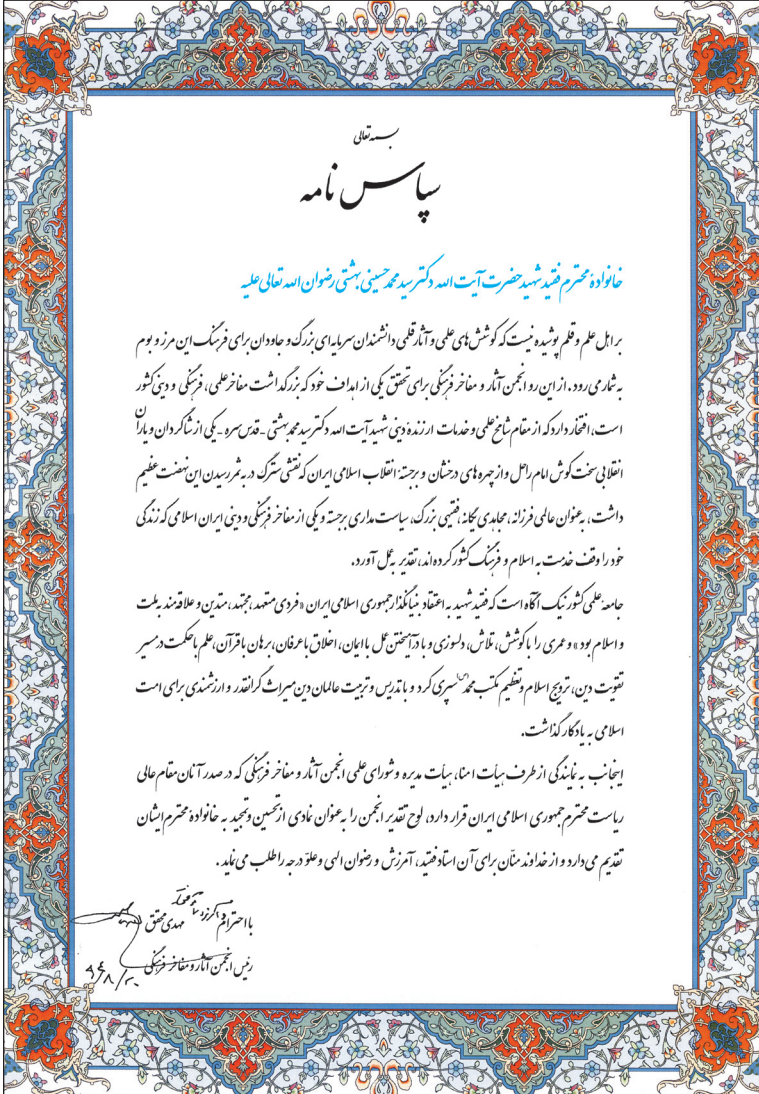 بسمه تعالی
سپاس نامه
خانوادهٔ محترم فقید شهید حضرت آیت الله دکتر سید محمد حسینی بهشتی رضوان الله تعالی علیه
بر اهل علم و قلم پوشیده نیست که کوشش های علمی و آثار قلمی دانشمندان سرمایه ای بزرگ و جاودان برای فرهنگ این مرز و بوم
به شمار می رود. از این رو انجمن آثار و مفاخر فرهنگی برای تحقق یکی از اهداف خود که بزرگداشت مفاخر علمی، فرهنگی و دینی کشور
است، افتخار دارد که از مقام شامخ علمی و خدمات ارزندهٔ دینی شهید آیت الله دکتر سید محمد بهشتی - قدس سره - یکی از شاگردان و یاران
انقلابی سخت کوش امام راحل و از چهره های درخشان و برجستهٔ انقلاب اسلامی ایران که نقشی سترگ در به ثمر رسیدن این نهضت عظیم
داشت، به عنوان عالمی فرزانه، مجاهدی یگانه، فقیهی بزرگ، سیاست مداری برجسته و یکی از مفاخر فرهنگی و دینی ایران اسلامی که زندگی
خود را وقف خدمت به اسلام و فرهنگ کشور کرده اند، تقدیر به عمل آورد.
جامعهٔ علمی کشور نیک آگاه است که فقید شهید به اعتقاد بنیانگذار جمهوری اسلامی ایران «فردی متعهد، مجتهد، متدین و علاقه مند به ملت
و اسلام بود» و عمری را با کوشش، تلاش، دلسوزی و با درآمیختن عمل با ایمان، اخلاق با عرفان، برهان با قرآن، علم با حکمت در مسیر
تقویت دین، ترویج اسلام و تعظیم مکتب محمد(ص) سپری کرد و با تدریس و تربیت عالمان دین میراث گرانقدر و ارزشمندی برای امت
اسلامی به یادگار گذاشت.
اینجانب به نمایندگی از طرف هیأت امنا، هیأت مدیره و شورای علمی انجمن آثار و مفاخر فرهنگی که در صدر آنان مقام عالی
ریاست محترم جمهوری اسلامی ایران قرار دارد، لوح تقدیر انجمن را به عنوان نمادی از تحسین و تمجید به خانوادهٔ محترم ایشان
تقدیم می دارد و از خداوند منّان برای آن استاد فقید، آمرزش و رضوان الهی و علوّ درجه را طلب می نماید.
با احترام
مهدی محقق
رئیس انجمن آثار و مفاخر فرهنگی